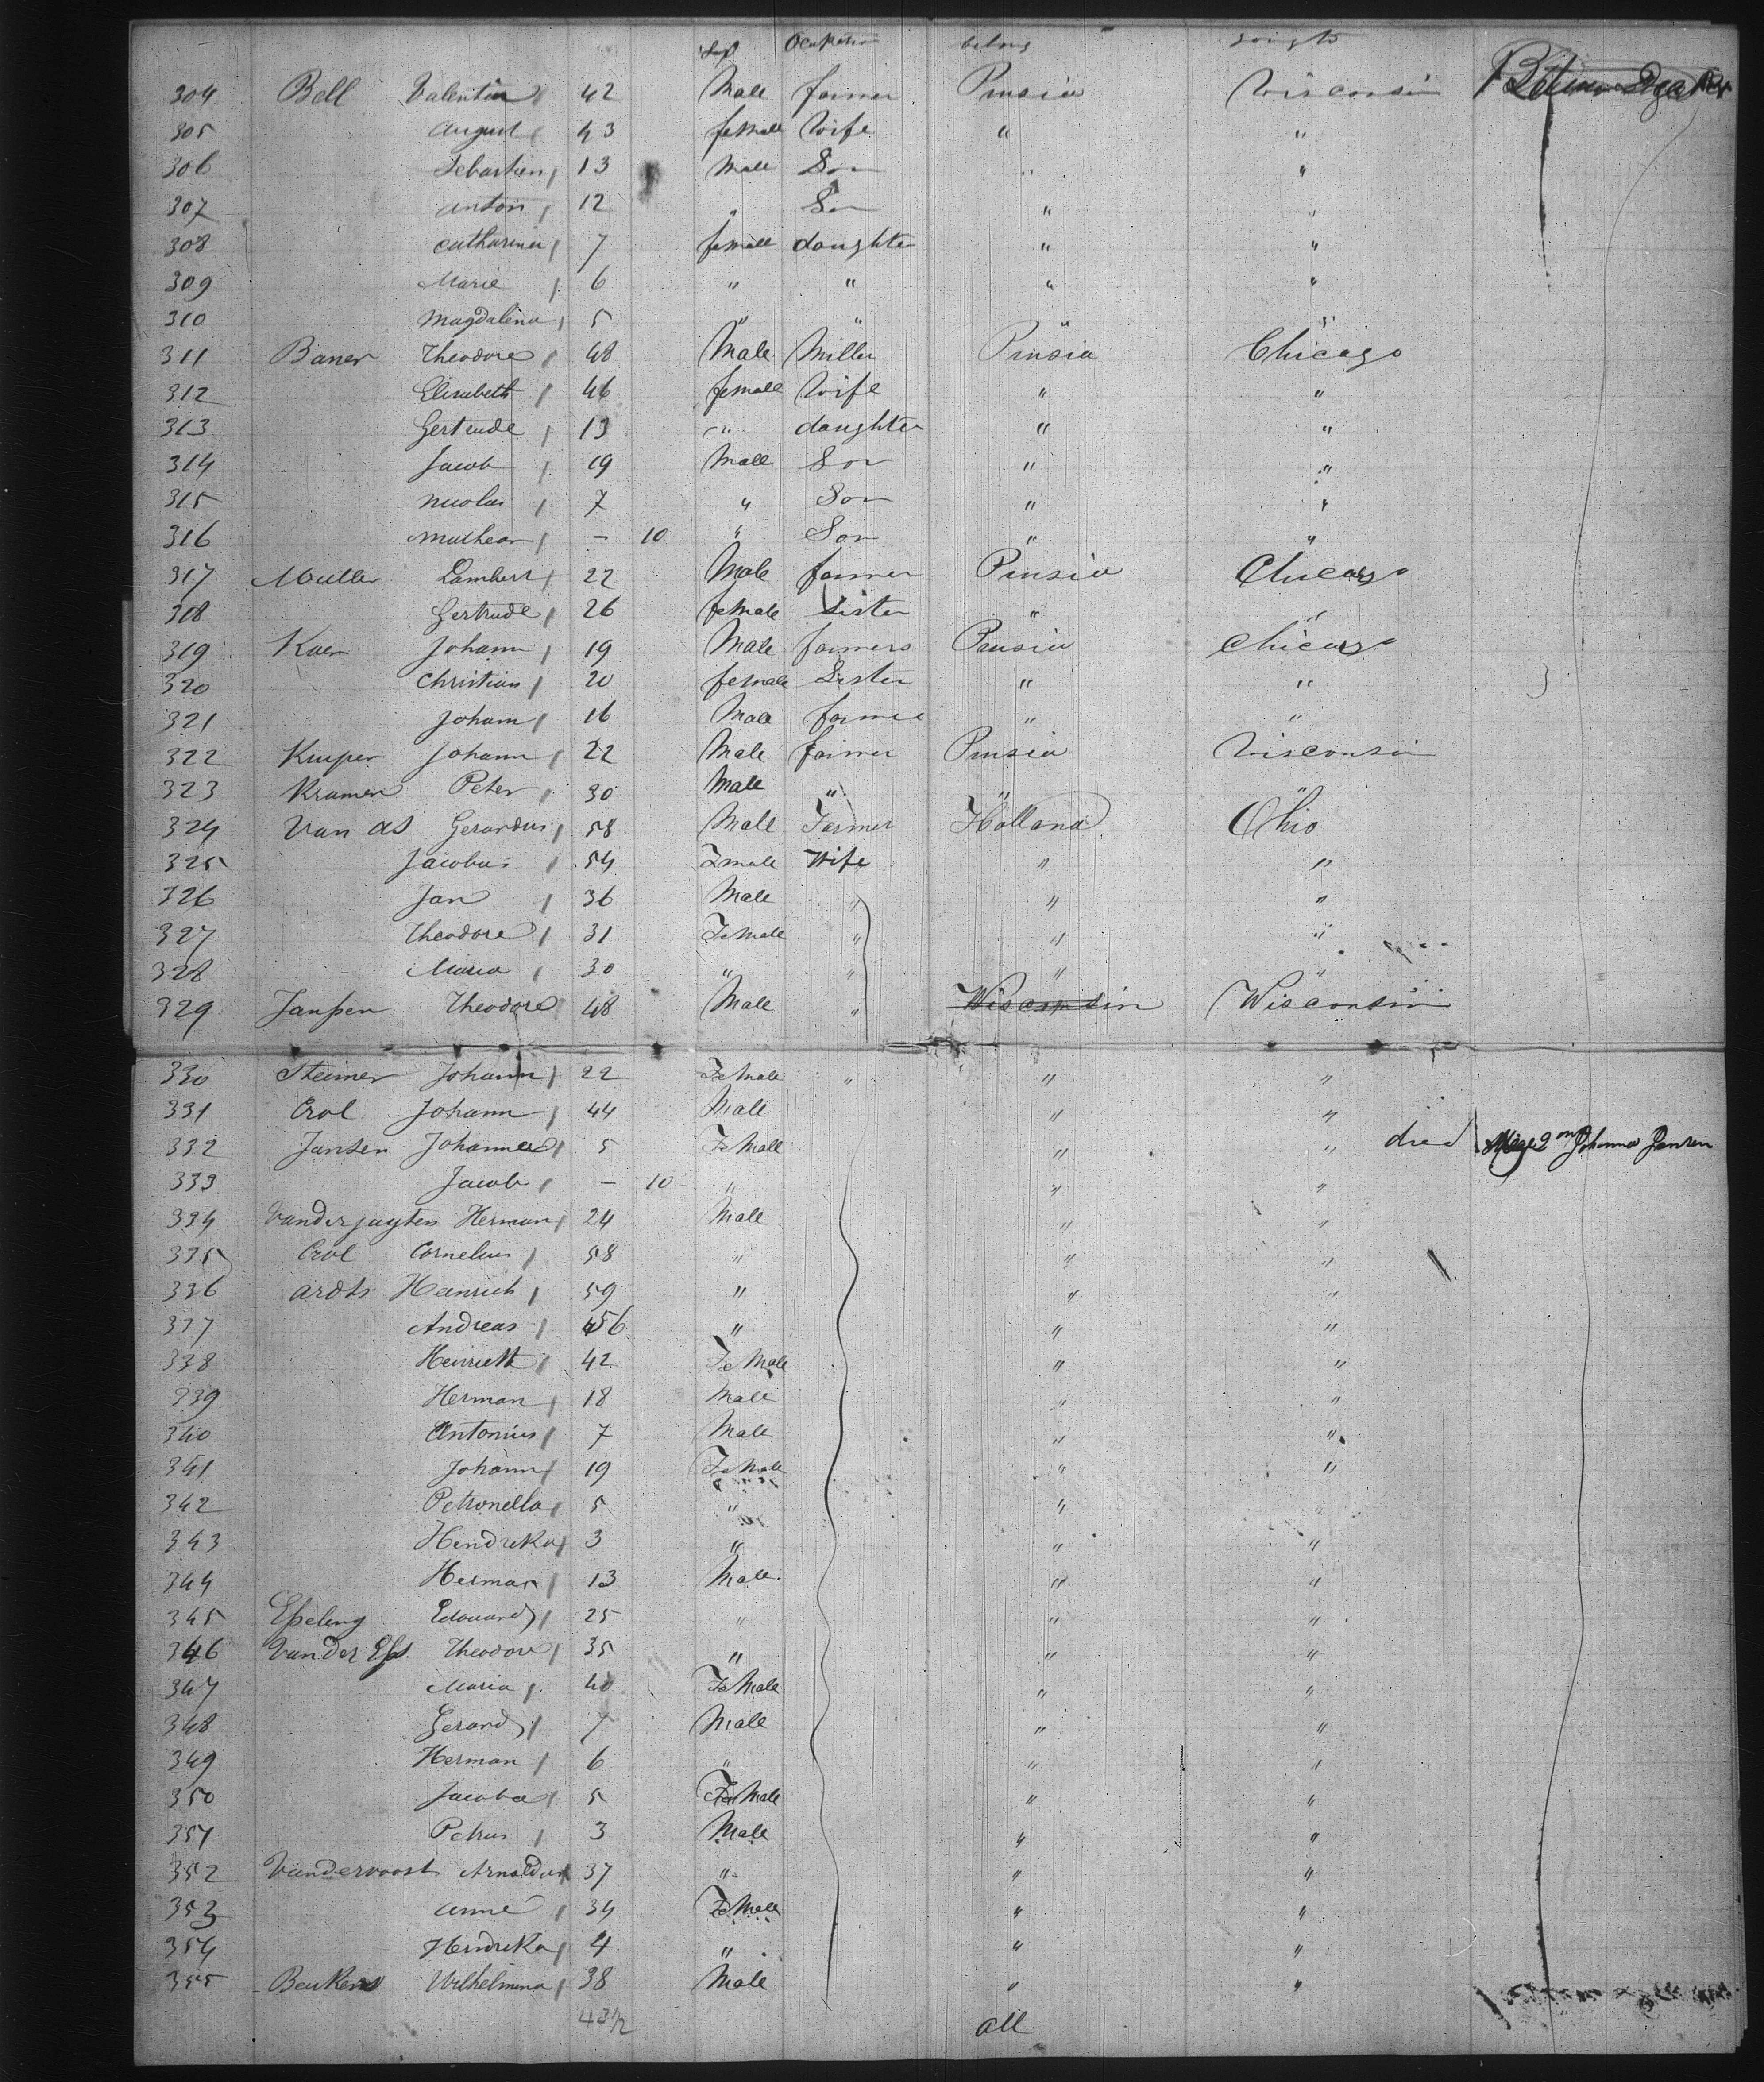 Sex Ocupation belong
304 Bell Valentin / 42 Male farmer Prusia Wisconsin
305 August / 43 female Wife " "
306 Sebastien / 13 Male Son " "
307 Anton / 12 " Son " "
308 Catharina / 7 female daughter " "
309 Marie / 6 " " " "
310 Magdalena / 5 " " " "
311 Baner Theodore / 48 Male Miller Prusia Chicago
312 Elisabeth / 46 female Wife " "
313 Gertrude / 13 " daughter " "
314 Jacob / 19 Male Son " "
315 Nicolas / 7 " Son " "
316 / — 10 " Son " "
317 Muller Lambert / 22 Male farmer Prusia Chicago
318 Gertrude / 26 female Sister " "
319 Johann / 19 Male farmers Prusia Chicago
320 Christian / 20 female Sister " "
321 Johann / 16 Male farmer " "
322 Johann / 22 Male farmer Prusia Wisconsin
323 Kramer Peter / 30 Male " " "
324 Van as Gerardus / 58 Male Farmer Holland Ohio
325 Jacobus / 54 Fmale Wife " "
326 Jan / 36 Male " " "
327 Theodore / 31 FeMale " " "
328 Maria / 30 " " " "
329 Janssen Theodore 48 Male " Wisconsin Wisconsin
330 Steimer Johann / 22 FeMale " " "
331 Crol Johann / 44 Male " "
332 Jansen Johanna / 5 FeMale " " died May 2 Johanna Jansen
333 Jacob / — 10 " " "
334 Vanderjagten Herman / 24 Male " "
335 Crol Cornelius / 58 " " "
336 Ardts Heinrich / 59 " " "
337 Andreas / 56 " " "
338 Henriett / 42 FeMale " "
339 Herman / 18 Male " "
340 Antonius / 7 Male " "
341 Johann / 19 FeMale " "
342 Petronella / 5 " "
343 Hendrika / 3 " " "
344 Herman / 13 Male " "
345 Esseling Edouard / 25 " " "
346 Vander Ess Theodore / 35 " " "
347 Maria / 40 FeMale " "
348 Gerard / 7 Male " "
349 Herman / 6 " " "
350 Jacoba / 5 FeMale " "
351 Petrus / 3 Male " "
352 Vandervoost Arnoldus 37 " " "
353 Anne / 34 FeMale " "
354 Hendrika / 4 " " "
355 Beukens Wilhelmina / 38 Male " "
43½ all